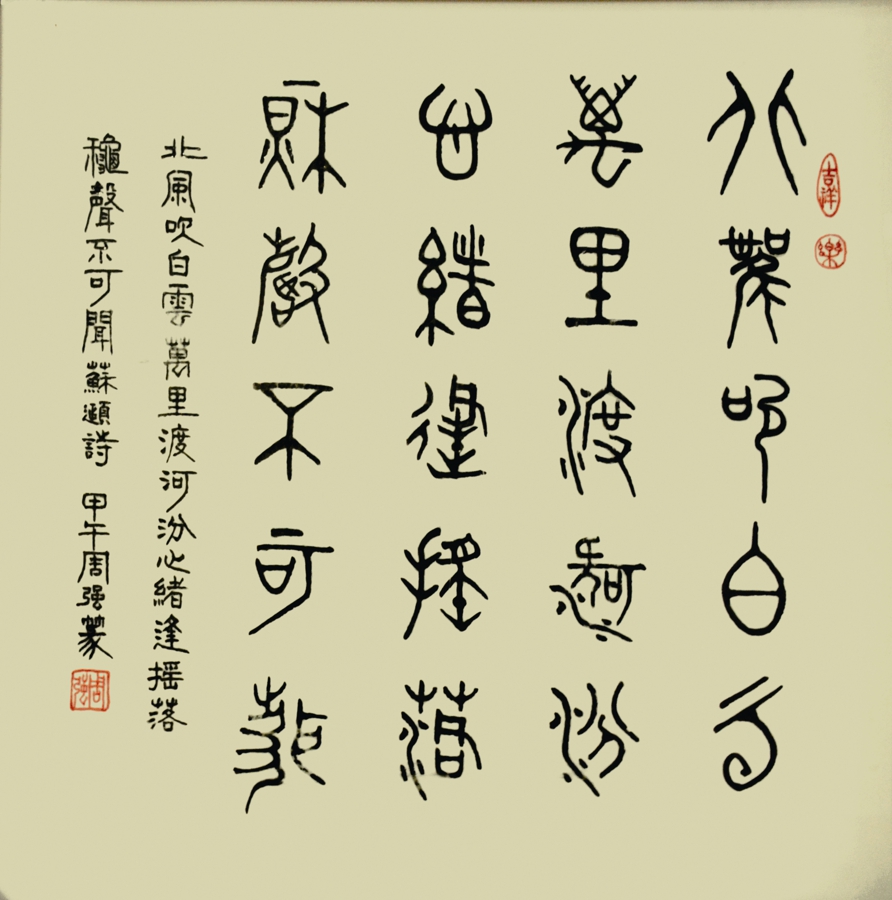 吉祥
樂
北風吹白雲
萬里渡河汾
心緒逢摇落
秋聲不可聞
北風吹白雲萬里渡河汾心緒逢摇落
龝聲不可聞蘇頲詩 甲午周强篆
周强